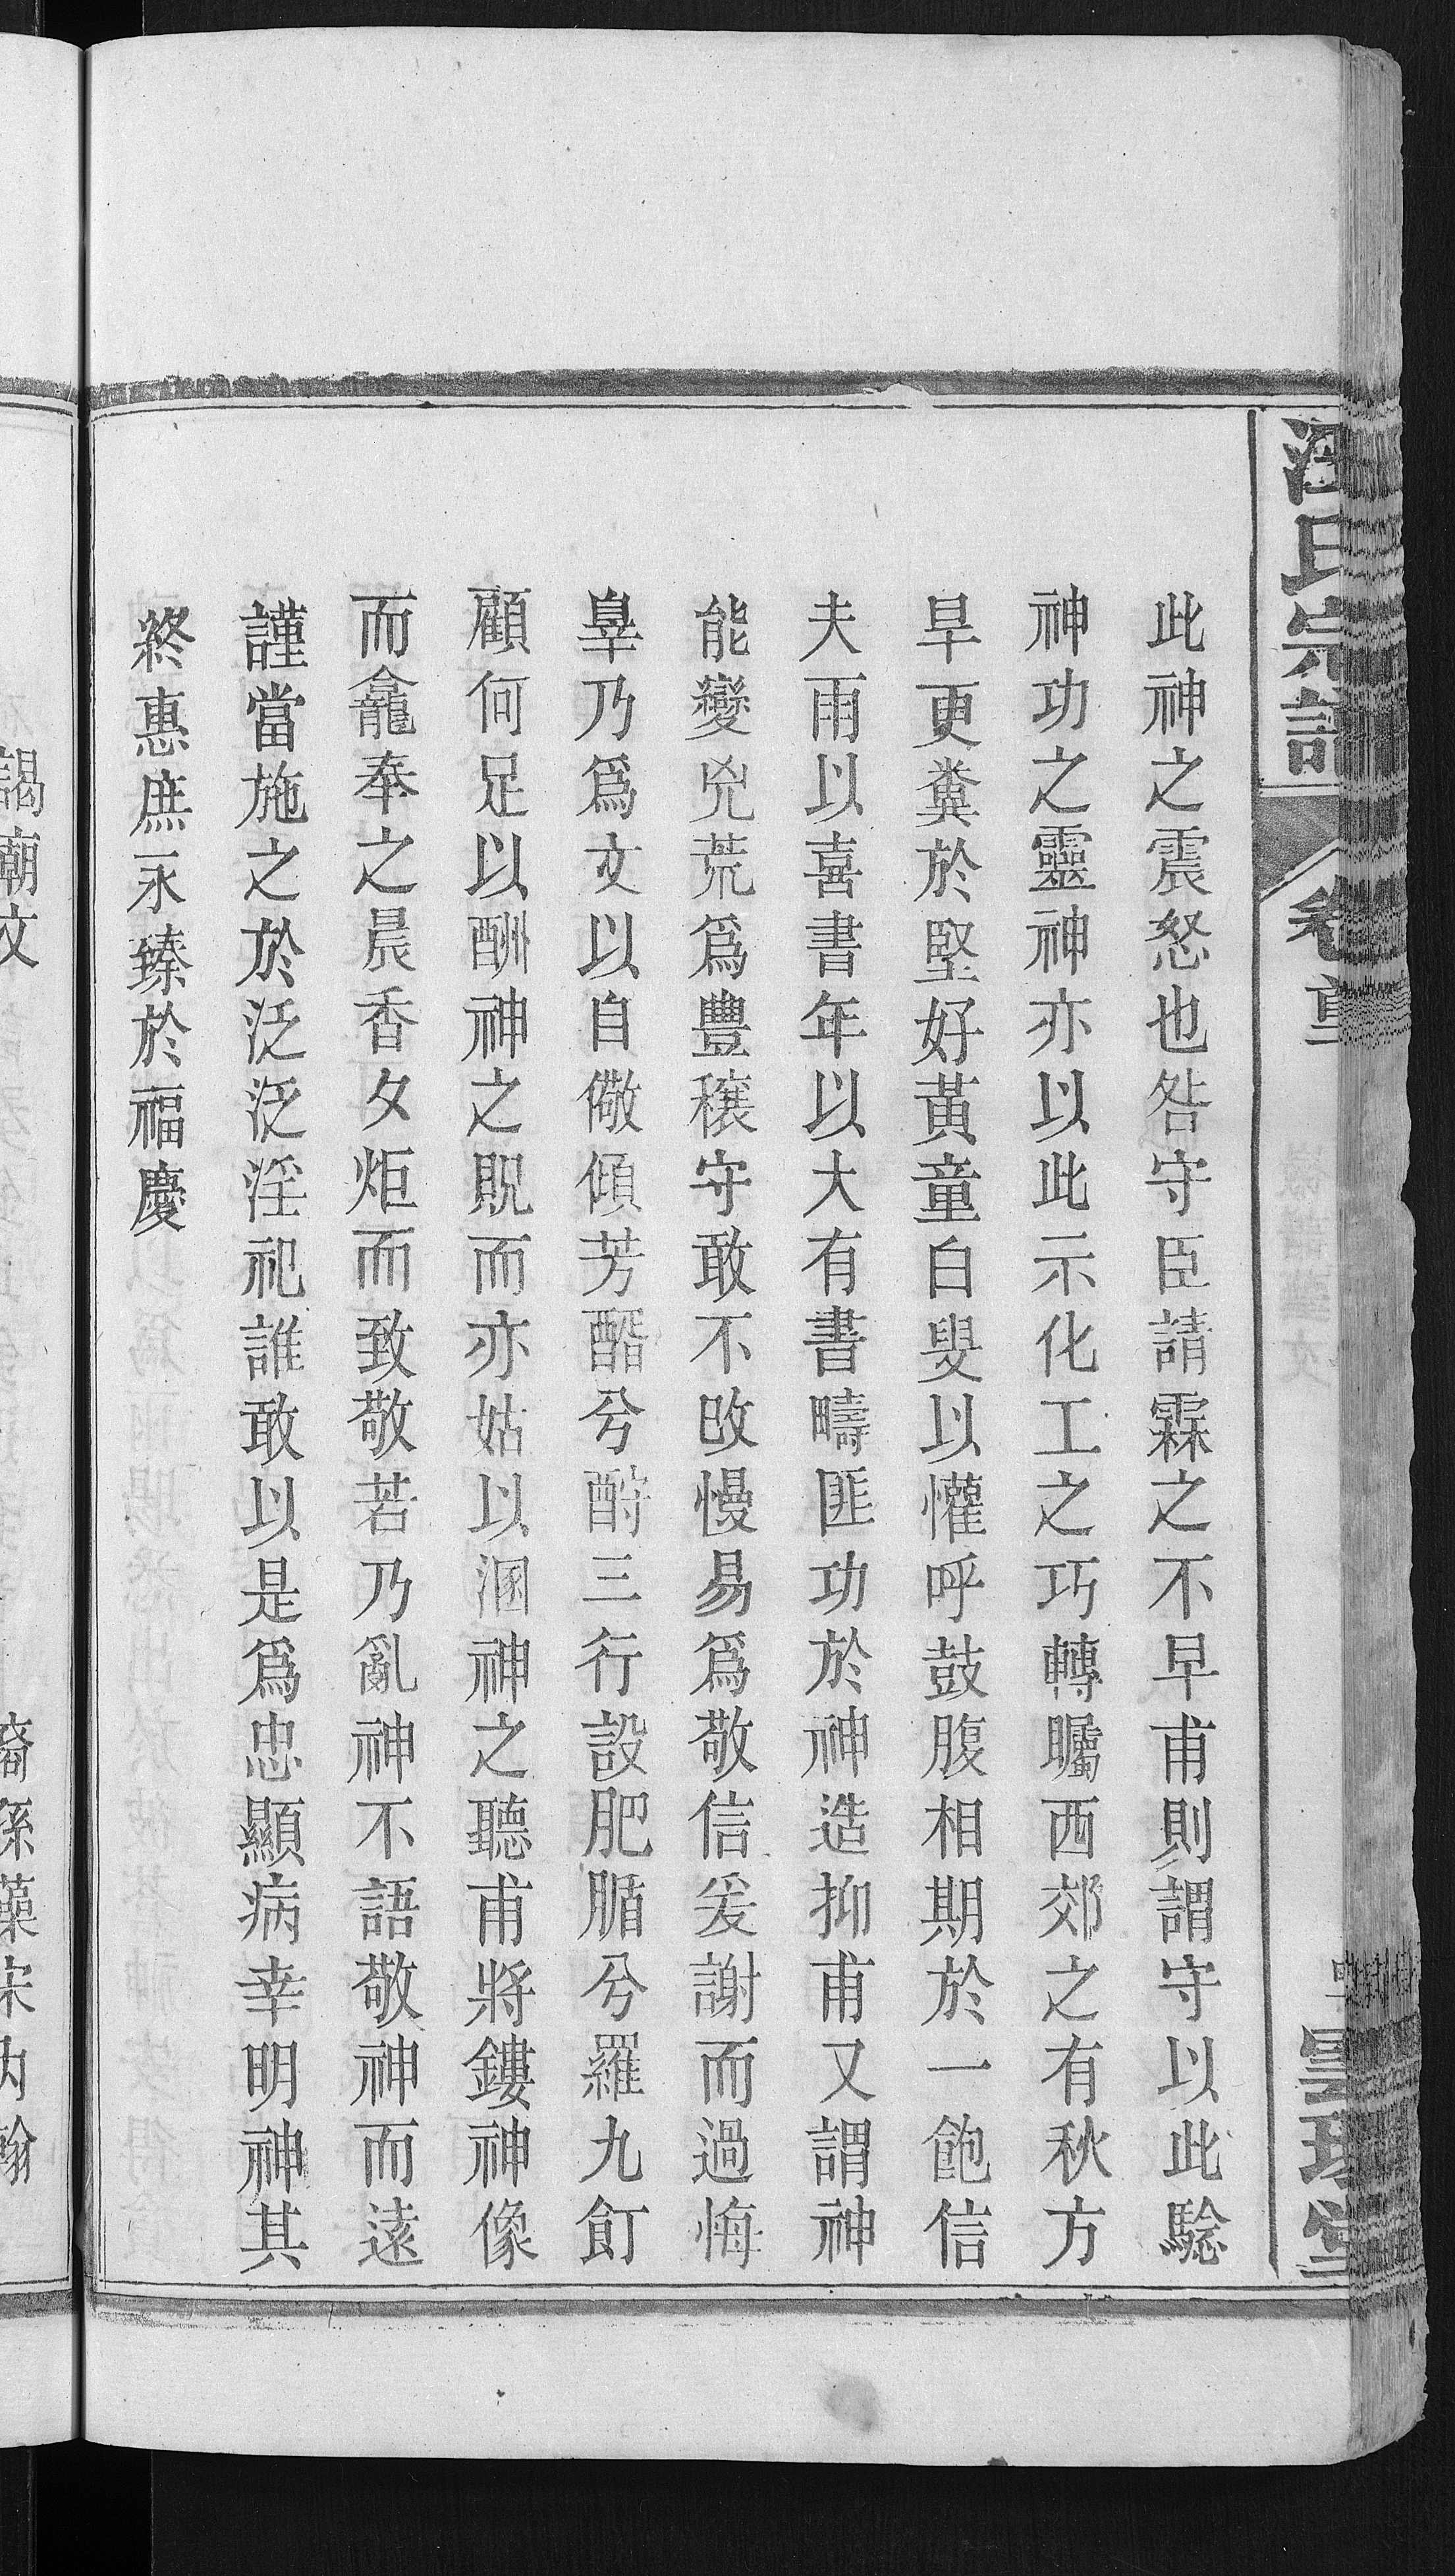 汪氏宗譜
卷首
此神之震怒也咎守臣請霖之不早甫則謂守以此騐
神功之靈神亦以此示化工之巧轉矚西郊之有秋方
旱更糞於堅好黃童白叟以懽呼鼓腹相期於一飽信
夫雨以喜書年以大有書疇匪功於神造抑甫又謂神
能變兇荒爲豐穰守敢不攺慢易爲敬信爰謝而過悔
辠乃爲文以自儆傾芳醑兮酹三行設肥腯兮羅九飣
顧何足以酬神之貺而亦姑以溷神之聽甫將鏤神像
而龕奉之晨香夕炬而致敬若乃亂神不語敬神而遠
謹當施之於泛泛淫祀誰敢以是爲忠顯病幸明神其
終惠庶永臻於福慶
謁廟文
裔孫藻宋內翰